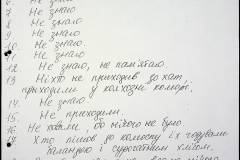 6. Не знаю.
7. Не знаю.
8. Не знаю.
9. Не знаю.
10. Не знаю.
11. Не знаю.
12. Не знаю, не пам'ятаю.
13. Ніхто не приходив до хат
приходили у колхозні коморі.
14. Не знаю.
15. Не приходили.
16. Не ховали, бо нічого не було.
Хто пішов до колхозу їх годували
баландою и сурогатним хлібом.